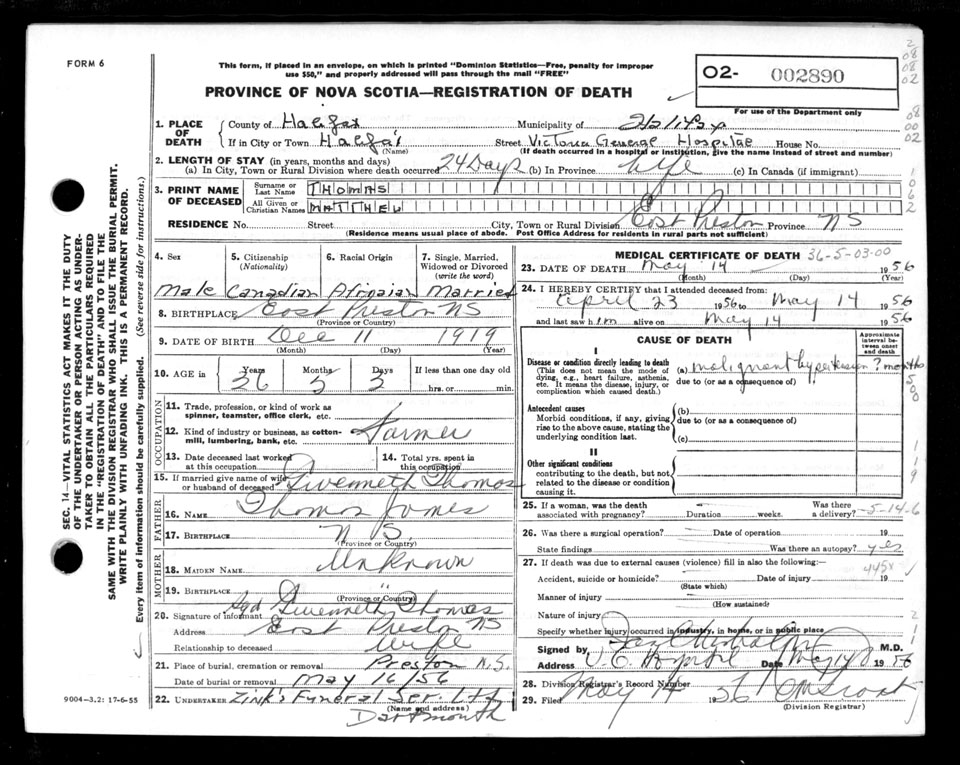 FORM 6
This form, if placed in an envelope, on which is printed "Dominion Statistics—Free, penalty for improper
use $50," and properly addressed will pass through the mail "FREE"
PROVINCE OF NOVA SCOTIA—REGISTRATION OF DEATH
O2- 002890
For use of the Department only
1. PLACE OF DEATH
County of Halifax Municipality of Halifax
If in City or Town Halifax (Name) Street Victoria General Hospital House No.
(If death occurred in a hospital or institution, give the name instead of street and number)
2. LENGTH OF STAY (in years, months and days)
(a) In City, Town or Rural Division where death occurred 24 Days (b) In Province Life (c) In Canada (if immigrant)
3. PRINT NAME OF DECEASED
Surname or Last Name THOMAS
All Given or Christian Names MATTHEW
RESIDENCE No. Street City, Town or Rural Division East Preston Province NS
(Residence means usual place of abode. Post Office Address for residents in rural parts not sufficient)
4. Sex 5. Citizenship (Nationality) 6. Racial Origin 7. Single, Married, Widowed or Divorced (write the word)
Male Canadian Married
8. BIRTHPLACE East Preston NS
(Province or Country)
9. DATE OF BIRTH Dec 11 1919
(Month) (Day) (Year)
10. AGE in Years Months Days If less than one day old
36 5 3 hrs. or min.
OCCUPATION
11. Trade, profession, or kind of work as spinner, teamster, office clerk, etc.
12. Kind of industry or business, as cotton-mill, lumbering, bank, etc. Farmer
13. Date deceased last worked at this occupation
14. Total yrs. spent in this occupation
15. If married give name of wife or husband of deceased Gwenneth Thomas
FATHER
16. NAME Thomas James
17. BIRTHPLACE N S
(Province or Country)
MOTHER
18. MAIDEN NAME Unknown
19. BIRTHPLACE "
(Province or Country)
20. Signature of informant Sgd Gwenneth Thomas
Address East Preston NS
Relationship to deceased Wife
21. Place of burial, cremation or removal Preston N.S.
Date of burial or removal May 16/56
22. UNDERTAKER Zink's Funeral Ser. Ltd
(Name and address)
Dartmouth
MEDICAL CERTIFICATE OF DEATH 36-5-03-00
23. DATE OF DEATH May 14 1956
(Month) (Day) (Year)
24. I HEREBY CERTIFY that I attended deceased from:
April 23 1956 to May 14 1956
and last saw him alive on May 14 1956
CAUSE OF DEATH
Approximate interval between onset and death
I
Disease or condition directly leading to death
(This does not mean the mode of dying, e.g., heart failure, asthenia, etc. It means the disease, injury, or complication which caused death.)
(a) malignant hypertension ? months
due to (or as a consequence of)
Antecedent causes
Morbid conditions, if any, giving rise to the above cause, stating the underlying condition last.
(b)
due to (or as a consequence of)
(c)
II
Other significant conditions
contributing to the death, but not related to the disease or condition causing it.
25. If a woman, was the death associated with pregnancy? Duration weeks. Was there a delivery?
5-14-6
26. Was there a surgical operation? Date of operation 19
State findings Was there an autopsy? yes
27. If death was due to external causes (violence) fill in also the following:—
445x
Accident, suicide or homicide? Date of injury 19
(State which)
Manner of injury
(How sustained)
Nature of injury
Specify whether injury occurred in industry, in home, or in public place
Signed by M.D.
Address V.G. Hospital Date May 14 1956
28. Division Registrar's Record Number
29. Filed May 14 1956
(Division Registrar)
SEC. 14—VITAL STATISTICS ACT MAKES IT THE DUTY
OF THE UNDERTAKER OR PERSON ACTING AS UNDER-
TAKER TO OBTAIN ALL THE PARTICULARS REQUIRED
IN THE "REGISTRATION OF DEATH" AND TO FILE THE
SAME WITH THE DIVISION REGISTRAR WHO SHALL ISSUE THE BURIAL PERMIT.
WRITE PLAINLY WITH UNFADING INK. THIS IS A PERMANENT RECORD.
Every item of information should be carefully supplied. (See reverse side for instructions.)
9004—3,2: 17-6-55